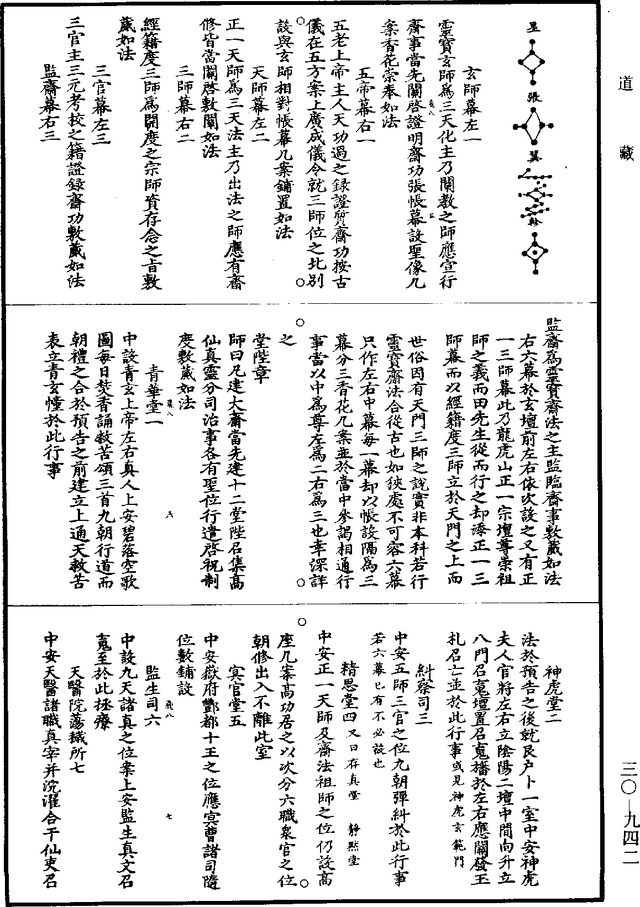 道藏
三〇—九四二
星
張
翼
軫
玄師幕左一
靈寶玄師為三天化主乃闡教之師應宣行
齋事當先關啓證明齋功張帳幕設聖像几
案香花崇奉如法
五帝幕右一
五老上帝主人天功過之錄證質齋功按古
儀在五方案上廣成儀令就三師位之北別
設與玄師相對帳幕几案鋪置如法
天師幕左二
正一天師為三天法主乃出法之師應有齋
修皆當關啓敷闡如法
三師幕右二
經籍度三師為開度之宗師資存念之旨敷
嚴如法
三官幕左三
三官主三元考校之籍證錄齋功敷嚴如法
監齋幕右三
監齋為靈寶齋法之主監臨齋事敷嚴如法
右六幕於玄壇前左右依次設之又有正
一三師幕此乃龍虎山正一宗壇尊崇祖
師之義而田先生從而行之却添正一三
師幕而以經籍度三師立於天門之上而
世俗因有天門三師之說實非本科若行
靈寶齋法合從古也如狹處不可容六幕
只作左右中幕每一幕却以帳設隔為三
幕分三香花几案並於當中參謁相通行
事當以中為尊左為二右為三也幸深詳
之
堂陛章
師曰凡建大齋當先建十二堂陛召集高
仙真靈分司治事各有聖位行遣啓祝制
度敷嚴如法
青華堂一
中設青玄上帝左右真人上安碧落空歌
圖每日焚香誦救苦頌三首九朝行道而
朝禮之合於預告之前建立上通天救苦
表立青玄幢於此行事
神虎堂二
法於預告之後就艮户卜一室中安神虎
夫人官將左右立陰陽二壇中間向升立
八門召䰟壇置召䰟旛於左右應關發玉
札召亡並於此行事或見神虎玄範門
糾察司三
中安五師三官之位九朝彈糾於此行事
若六幕已有不必設也
精思堂四又曰存真堂 靜默堂
中安正一天師及齋法祖師之位仍設高
座几案高功居之以次分六職衆官之位
朝修出入不離此室
冥官堂五
中安嶽府酆都十王之位應冥曹諸司隨
位數鋪設
監生司六
中設九天諸真之位案上安監生真文召
䰟至於此拯療
天醫院蕩穢所七
中安天醫諸職真宰并浣濯合干仙吏召